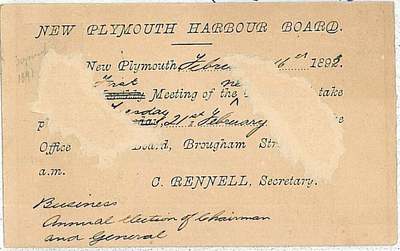 NEW PLYMOUTH HARBOUR BOARD.
New Plymouth, Febru 16th 1892.
First
Meeting of the take
p sday 21st February e
Office Board, Brougham Str
a.m.
C. RENNELL, Secretary.
Business
Annual election of Chairman
and General